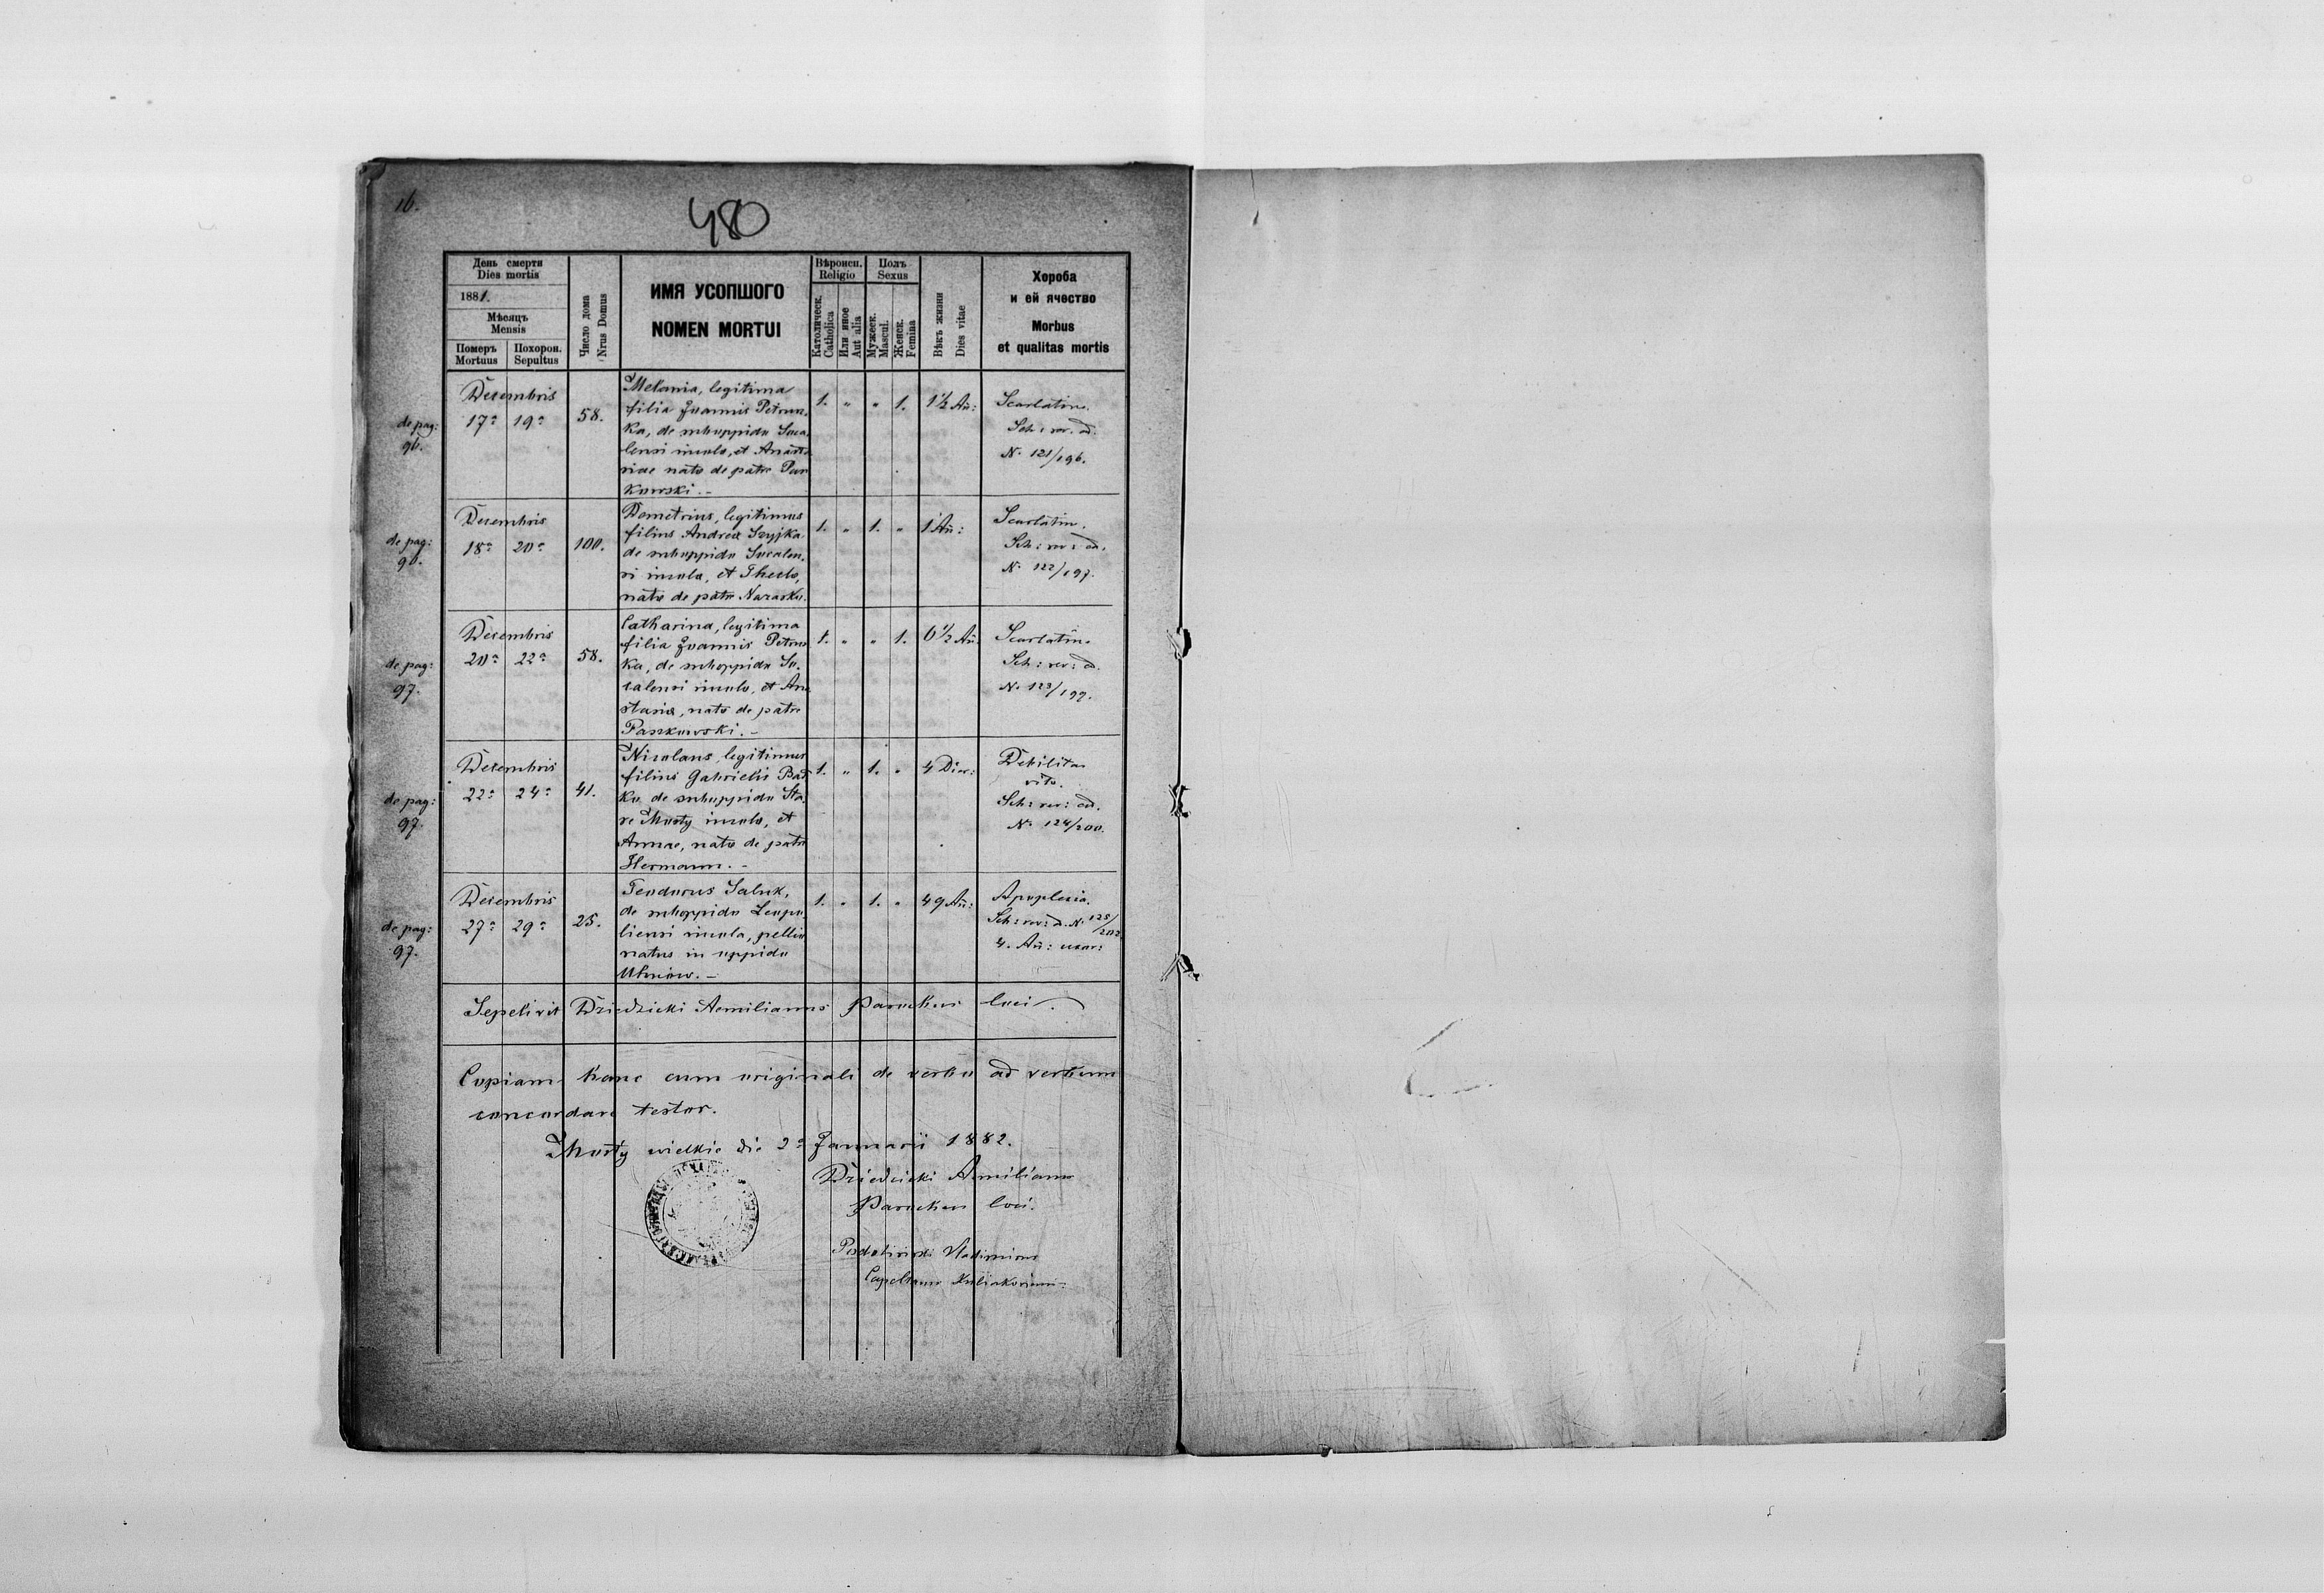 16.
480
День смерти
Dies mortis
1881.
Мѣсяцъ
Mensis
Померъ
Mortuus
Похорон.
Sepultus
Число дома
Nrus Domus
ИМЯ УСОПШОГО
NOMEN MORTUI
Вѣроисп.
Religio
Католическ.
Catholica
Или иное
Aut alia
Полъ
Sexus
Мужеск.
Mascul.
Женск.
Femina
Вѣкъ жизни
Dies vitae
Хороба
и ей ячество
Morbus
et qualitas mortis
de pag:
96.
Decembris
17a 19a
58.
Melania, legitima
filia Joannis Petrun-
ka, de suboppido Soca-
lensi incola, et Anasta-
siae nata de patre Pan
kowski.-
1. " " 1.
1½ An:
Scarlatina.
Sch: rev. ad.
N. 121/196.
de pag:
96.
Decembris
18a 20a
100.
Demetrius, legitimus
filius Andreae Szyjka
de suboppido Socalen-
si incola, et Thecla,
nata de patre
1. " 1. "
1 An:
Scarlatin.
Sch: rev: ad.
N. 122/197.
de pag:
97.
Decembris
20a 22a
58.
Catharina, legitima
filia Joannis Petrun
ka, de suboppido So-
calensi incola, et Ana
stasia, nata de patre
Pankowski.-
1. " " 1.
6½ An.
Scarlatin.
Sch: rev: ad.
N. 123/199.
de pag:
97.
Decembris
22a 24a
41.
Nicolaus, legitimus
filius Gabrielis
ka de suboppido Sta-
re Mosty incola, et
Annae, nata de patre
Hermann.-
1. " 1. "
4 Dier:
Debilitas
vita.
Sch: rev: ad.
N. 124/200.
de pag:
97.
Decembris
27a 29a
25.
Teodorus Saluk,
de suboppido Leopo
liensi incola, pellio
natus in oppido
Uhniów.-
1. " 1. "
49 An:
Apoplexia.
Sch: rev: a. N. 125/202
4. An:
Sepelivit Dziedzicki Aemilianus Parochus loci.
Copiam hanc cum originali de verbo ad verbum
concordare testor.
Mosty wielkie die 2a Januarii 1882.
Dziedzicki Aemilianus
Parochus loci.